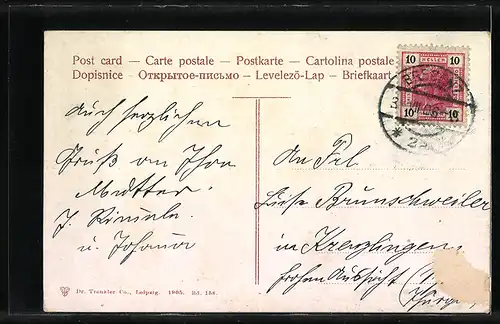 Post card — Carte postale — Postkarte — Cartolina postale
Dopisnice — Открытое-письмо — Levelező-Lap — Briefkaart
10 HELLER 10
10 10
Auch herzlichen
Gruß an Ihre
Mutter.
u. Johanna
An Frl.
Luise Brunschweiler
in Kreuzlingen
frohen Aussicht
(Thurg.
Dr. Trenkler Co., Leipzig. 1905. Bd. 158.